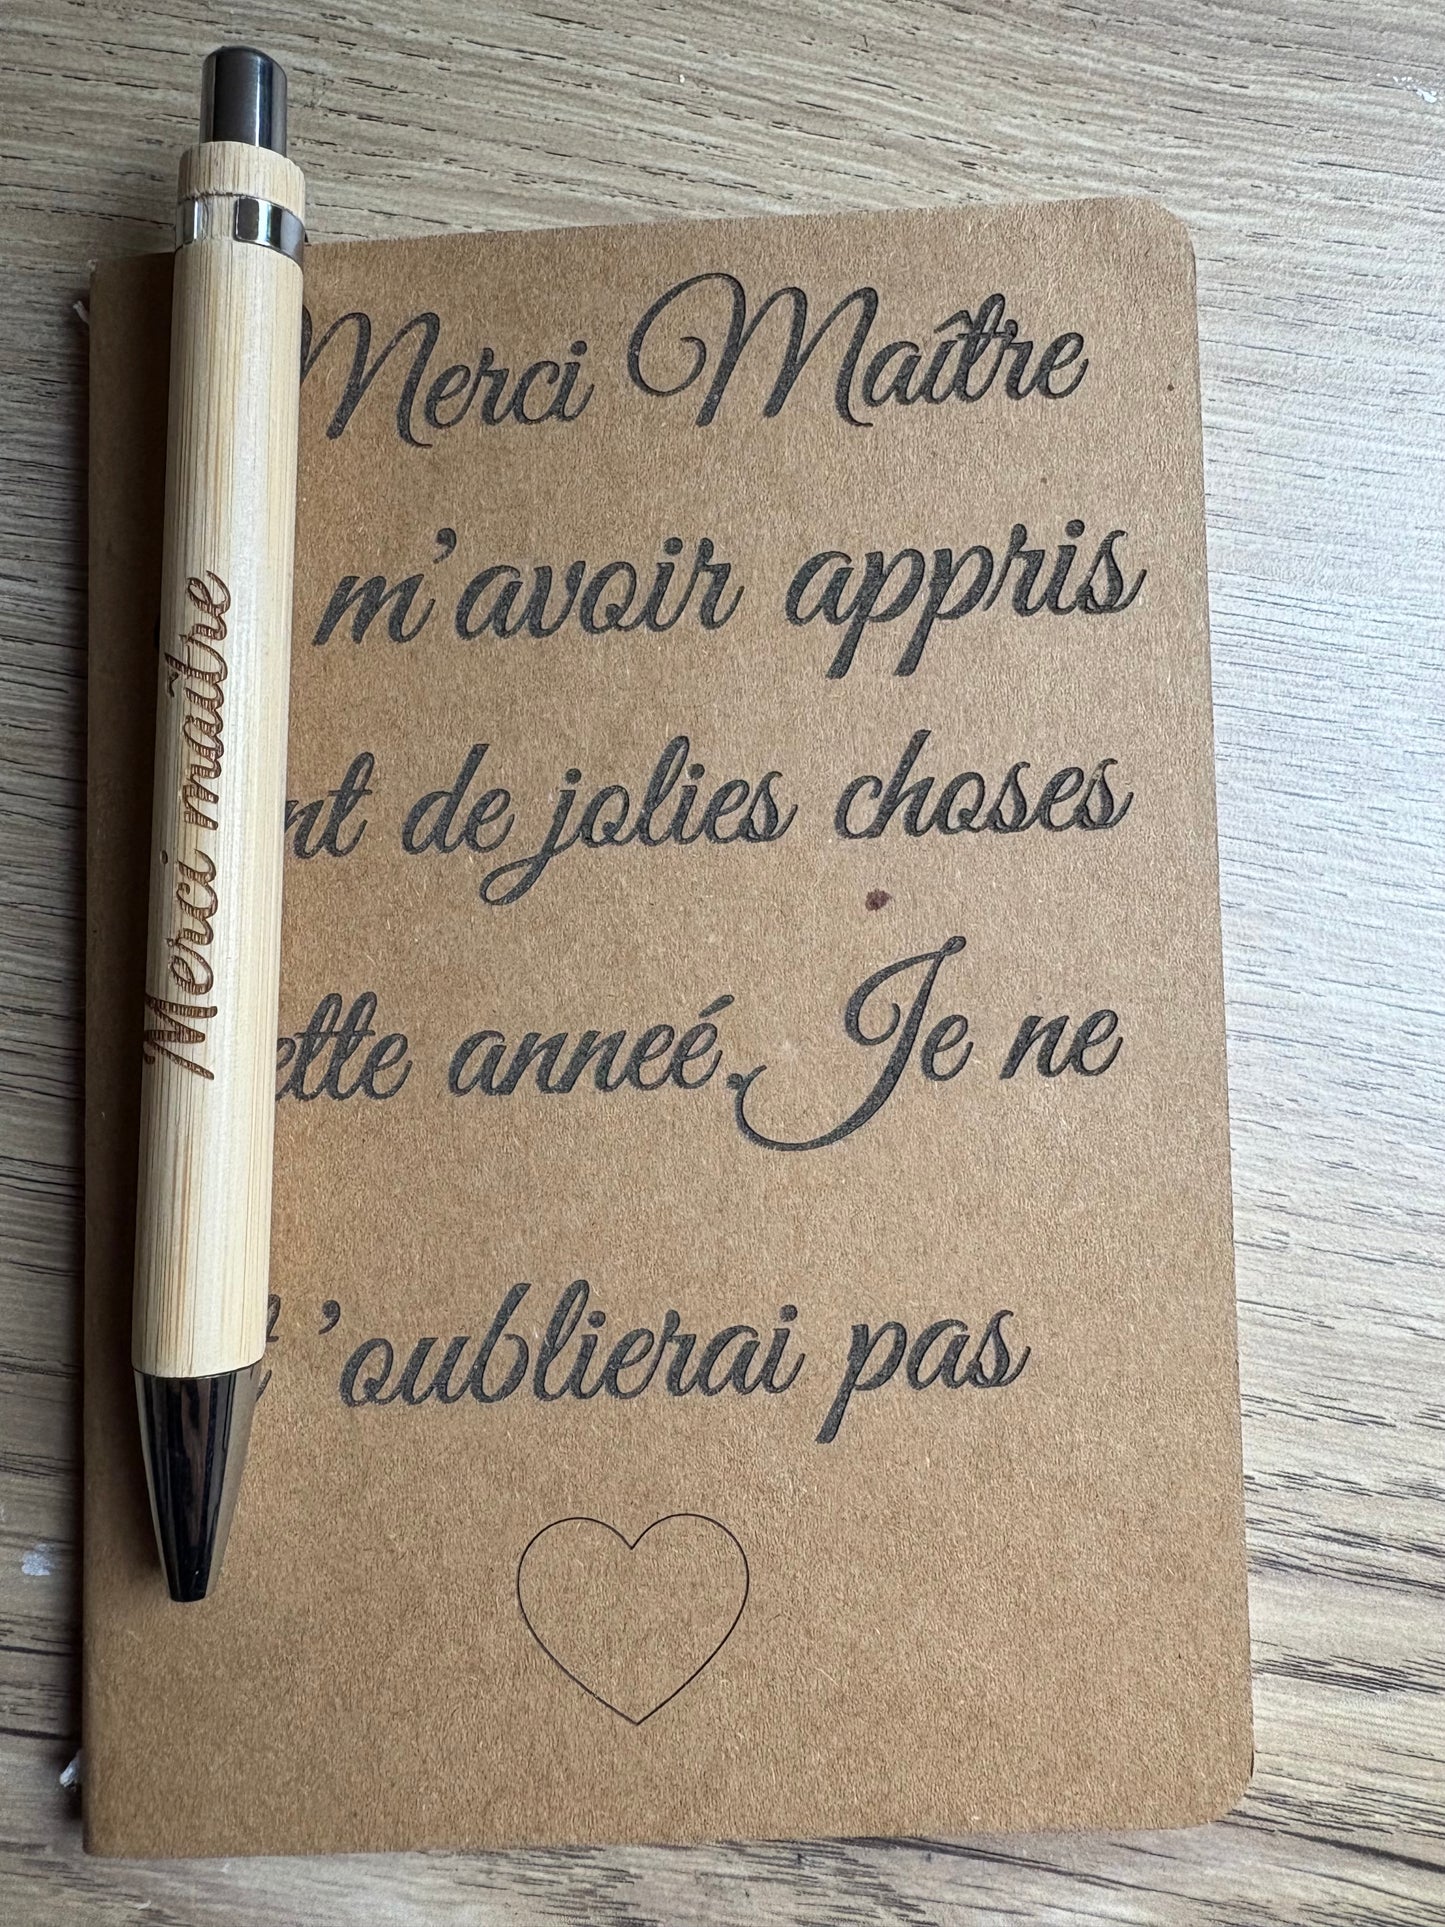 Merci Maître
m'avoir appris
nt de jolies choses
ette anneé. Je ne
t'oublierai pas
Merci maître